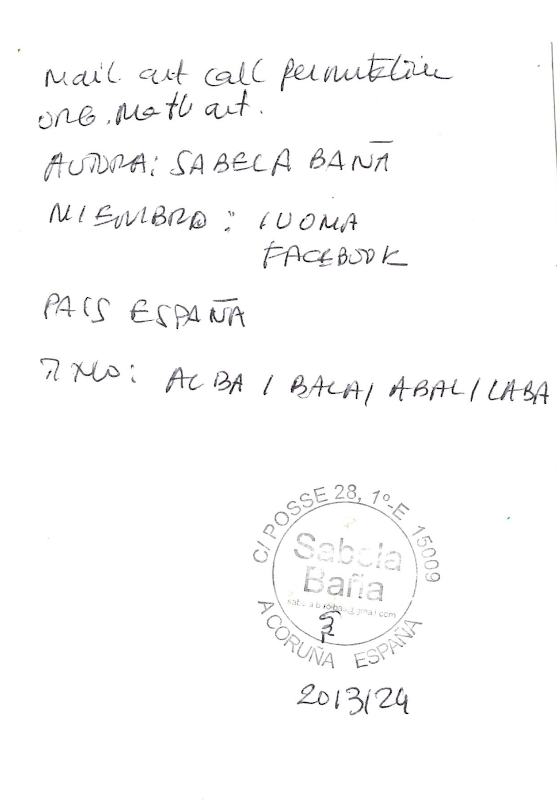 Mail art call permutation
ORG. Math art.
AUTORA: SABELA BAÑA
MIEMBRO: IUOMA
FACEBOOK
PAIS ESPAÑA
TITULO: ALBA / BALA / ABAL / LABA
C/ POSSE 28, 1º-E 15009
Sabela
Baña
A CORUÑA ESPAÑA
2013/24